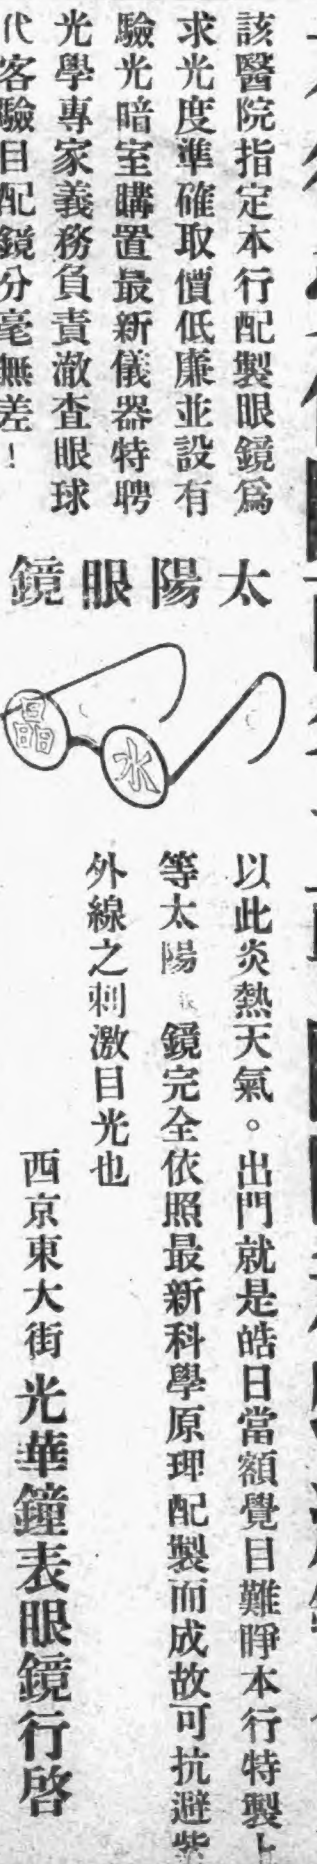 該醫院指定本行配製眼鏡爲
求光度準確取價低廉並設有
驗光暗室購置最新儀器特聘
光學專家義務負責澈查眼球
代客驗目配鏡分毫無差！
太陽眼鏡
水晶
以此炎熱天氣。出門就是皓日當額覺目難睜本行特製上
等太陽 鏡完全依照最新科學原理配製而成故可抗避紫
外線之刺激目光也
西京東大街 光華鐘表眼鏡行啓